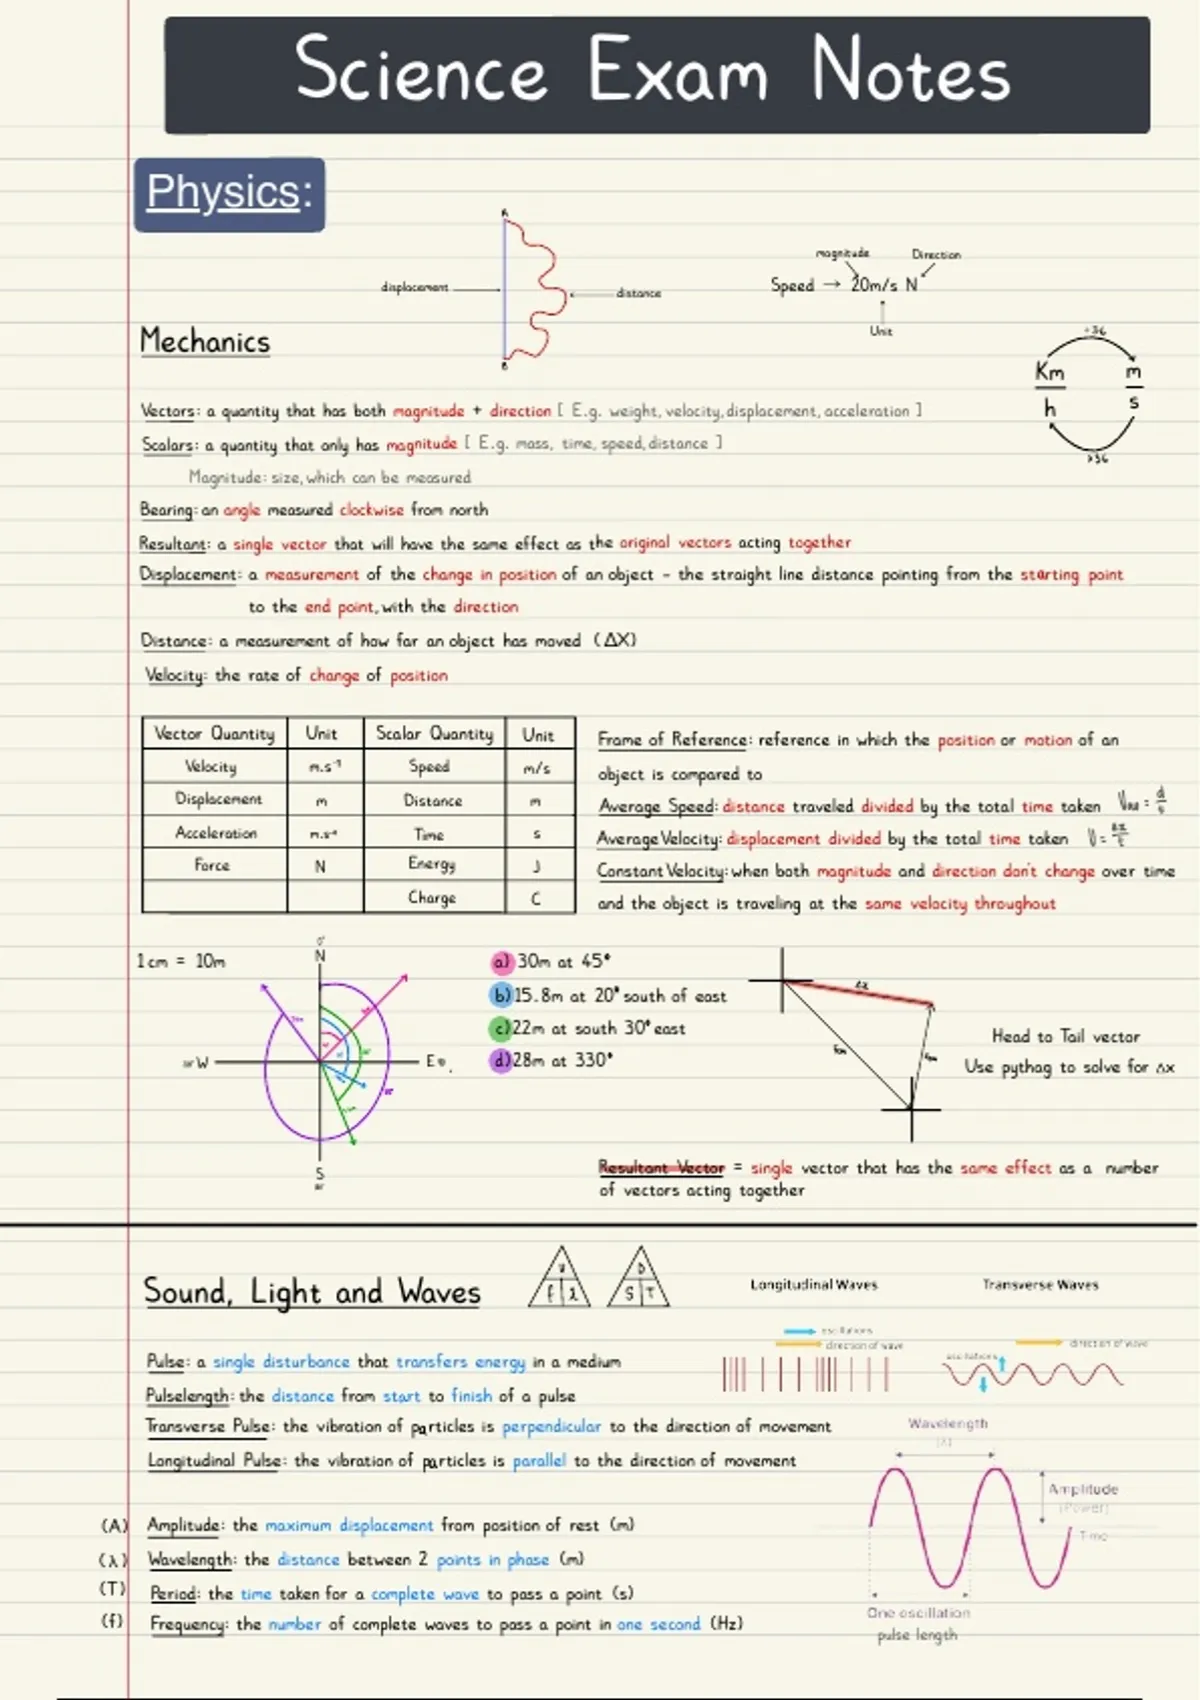 Science Exam Notes
Physics:
A
displacement
distance
B
magnitude
Direction
Speed → 20m/s N
Unit
Km
h
m
s
Mechanics
Vectors: a quantity that has both magnitude + direction [ E.g. weight, velocity, displacement, acceleration ]
Scalars: a quantity that only has magnitude [ E.g. mass, time, speed, distance ]
Magnitude: size, which can be measured
Bearing: an angle measured clockwise from north
Resultant: a single vector that will have the same effect as the original vectors acting together
Displacement: a measurement of the change in position of an object - the straight line distance pointing from the starting point
to the end point, with the direction
Distance: a measurement of how far an object has moved (ΔX)
Velocity: the rate of change of position
Vector Quantity Unit Scalar Quantity Unit
Velocity m.s⁻¹ Speed m/s
Displacement m Distance m
Acceleration Time s
Force N Energy J
Charge C
Frame of Reference: reference in which the position or motion of an
object is compared to
Average Speed: distance traveled divided by the total time taken
Average Velocity: displacement divided by the total time taken
Constant Velocity: when both magnitude and direction don't change over time
and the object is traveling at the same velocity throughout
1 cm = 10m
N
W
E
S
a) 30m at 45°
b) 15.8m at 20° south of east
c) 22m at south 30° east
d) 28m at 330°
Δx
Head to Tail vector
Use pythag to solve for Δx
Resultant Vector = single vector that has the same effect as a number
of vectors acting together
Sound, Light and Waves
V
f λ
D
S T
Longitudinal Waves
Transverse Waves
oscillations
direction of wave
oscillations
direction of wave
Pulse: a single disturbance that transfers energy in a medium
Pulselength: the distance from start to finish of a pulse
Transverse Pulse: the vibration of particles is perpendicular to the direction of movement
Longitudinal Pulse: the vibration of particles is parallel to the direction of movement
Wavelength
(λ)
Amplitude
(Power)
Time
One oscillation
pulse length
(A) Amplitude: the maximum displacement from position of rest (m)
(λ) Wavelength: the distance between 2 points in phase (m)
(T) Period: the time taken for a complete wave to pass a point (s)
(f) Frequency: the number of complete waves to pass a point in one second (Hz)